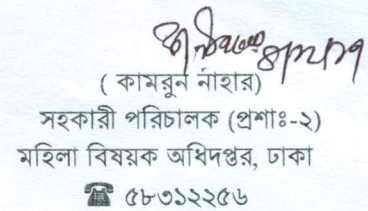 ( কামরুন নাহার)
সহকারী পরিচালক (প্রশাঃ-২)
মহিলা বিষয়ক অধিদপ্তর, ঢাকা
☎ ৫৮৩১২২৫৬